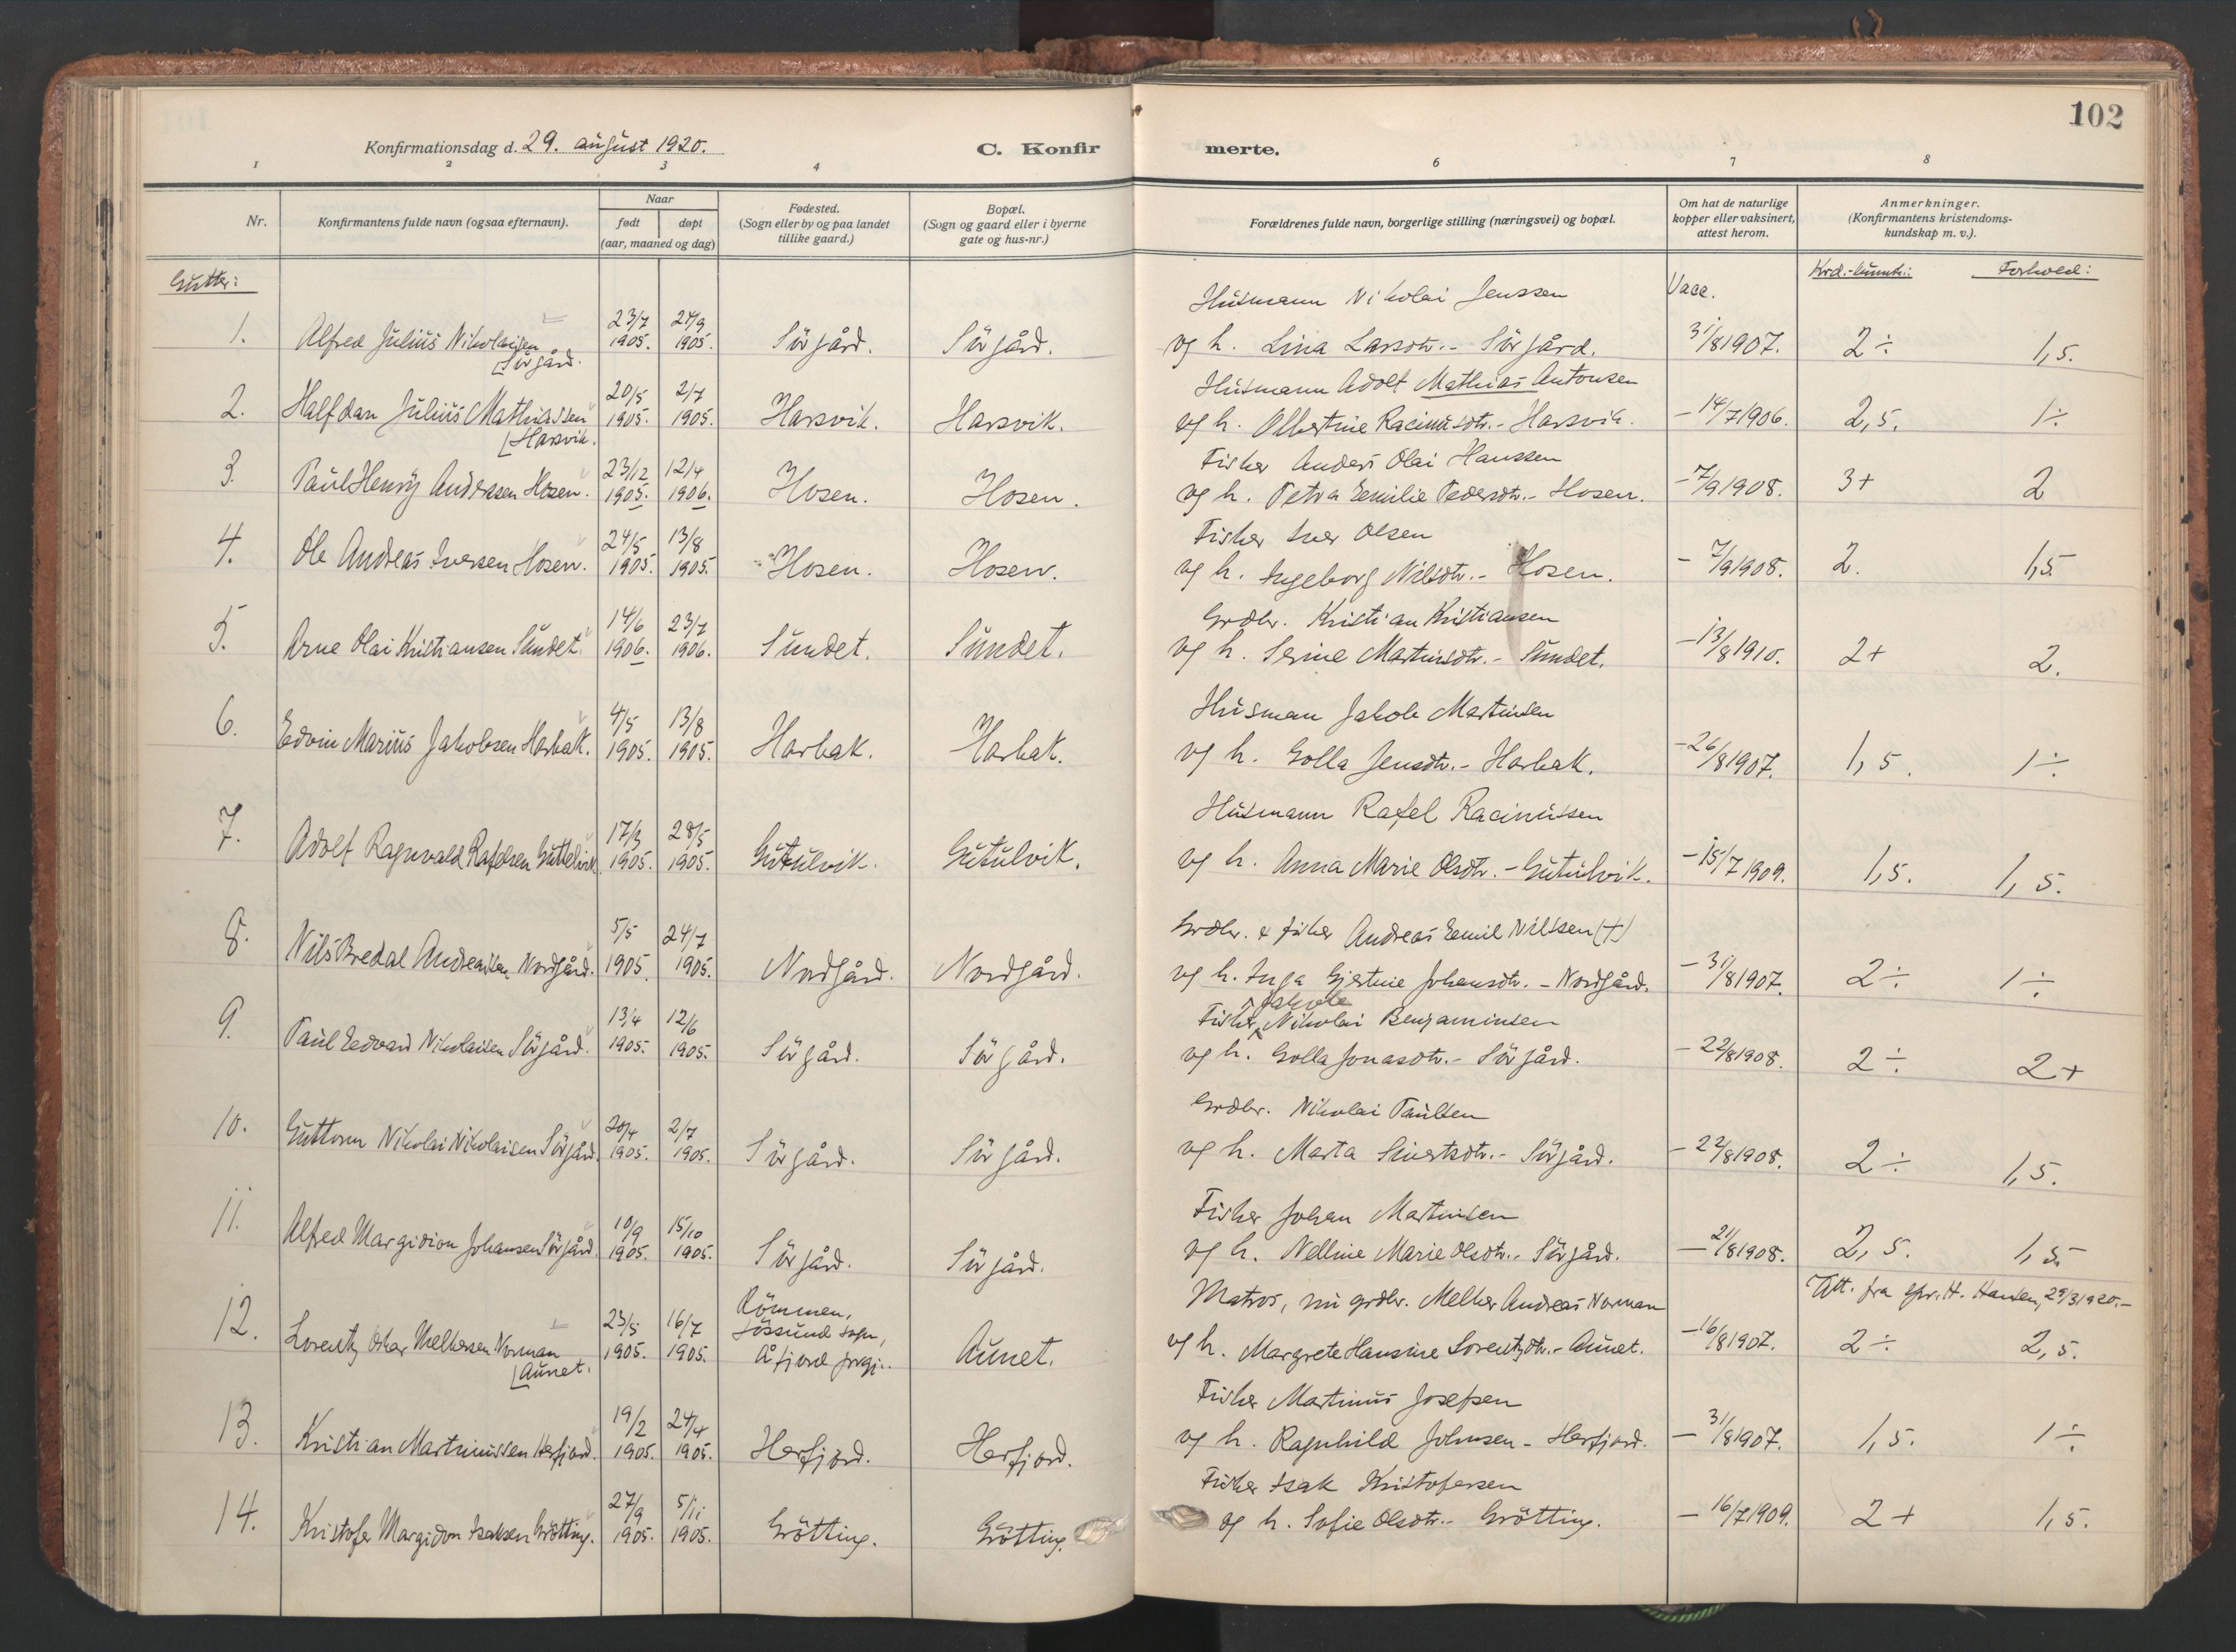 102
Konfirmationsdag d. 29. august 1920.
C. Konfirmerte.
1 2 3 4 6 7 8
Nr.
Konfirmantens fulde navn (ogsaa efternavn).
Naar
født
døpt
(aar, maaned og dag)
Fødested.
(Sogn eller by og paa landet
tillike gaard.)
Bopæl.
(Sogn og gaard eller i byerne
gate og hus-nr.)
Forældrenes fulde navn, borgerlige stilling (næringsvei) og bopæl.
Om hat de naturlige
kopper eller vaksinert,
attest herom.
Anmerkninger.
(Konfirmantens kristendoms-
kundskap m. v.).
Gutter:
Forhold:
Husmann Nikolai Jenssen Vacc.
23/7 24/9
1. Alfred Julius Nikolaisen 1905. 1905. Sörgård. Sörgård. og h. Lina Larsdtr. - Sörgård. 31/8 1907. 2÷ 1,5.
Sörgård.
Husmann Adolf Mathias Antonsen
20/5 2/7
2. Halfdan Julius Mathiassen 1905. 1905. Harsvik. Harsvik. og h. Olbertine Racinusdtr. - Harsvik. - 14/7 1906. 2,5. 1÷
Harsvik.
Fisker Anders Olai Hanssen
23/12 12/4
3. Paul Henry Anderssen Hosen. 1905. 1906. Hosen. Hosen. og h. Petra Emilie Pedersdtr. - Hosen. - 7/9 1908. 3+ 2
Fisker Iver Olsen
24/5 13/8
4. Ole Andreas Iversen Hosen. 1905. 1905. Hosen. Hosen. og h. Ingeborg Nilsdtr. - Hosen. - 7/9 1908. 2. 1,5.
Grdbr. Kristian Kristiansen
14/6 23/7
5. Arne Olai Kristiansen Sundet. 1906. 1906. Sundet. Sundet. og h. Serine Martinsdtr. - Sundet. - 13/8 1910. 2+ 2.
Husman Jakob Martinsen
4/5 13/8
6. Edvin Marius Jakobsen Harbak. 1905. 1905. Harbak. Harbak. og h. Golla Jensdtr. - Harbak. - 26/8 1907. 1,5. 1÷
Husmann Rafel Racinussen
17/3 28/5
7. Adolf Ragnvald Rafelsen Guttelvik 1905. 1905. Gutulvik. Gutulvik. og h. Anna Marie Olsdtr. - Gutulvik. - 15/7 1909. 1,5. 1,5.
Grdbr. & fisker Andreas Emil Nilssen (+)
5/5 24/7
8. Nils Bredal Andreassen Nordgård. 1905 1905. Nordgård. Nordgård. og h. Inga Gjertine Johansdtr. - Nordgård. - 31/8 1907. 2÷ 1÷
Jakob
Fisker Nikolai Benjaminsen
13/4 12/6
9. Paul Edvard Nikolaisen Sörgård. 1905. 1905. Sörgård. Sörgård. og h. Golla Jonasdtr. - Sörgård. - 22/8 1908. 2÷ 2+
Grdbr. Nikolai Paulsen
20/4 2/7
10. Guttorm Nikolai Nikolaisen Sörgård. 1905. 1905. Sörgård. Sörgård. og h. Marta Sivertsdtr. - Sörgård. - 22/8 1908. 2÷ 1,5.
Fisker Johan Martinsen
10/9 15/10
11. Alfred Margidion Johansen Sörgård. 1905. 1905. Sörgård. Sörgård. og h. Nelline Marie Olsdtr. - Sörgård. - 21/8 1908. 2,5. 1,5
Matros, nu grdbr. Melker Andreas Norman Att. fra spr. H. Hansen, 29/3 1920.-
Römmen,
23/5 16/7 Jössund sogn,
12. Lorentz Oskar Melkersen Norman 1905. 1905. Åfjord prgj.. Aunet. og h. Margrete Hansine Lorentzdtr. - Aunet. - 16/8 1907. 2÷ 2,5.
Aunet.
Fisker Martinus Josefsen
19/2 24/4
13. Kristian Martinussen Herfjord. 1905. 1905. Herfjord. Herfjord. og h. Ragnhild Johnsen - Herfjord. - 31/8 1907. 1,5. 1÷
Fisker Isak Kristofersen
27/9 5/11
14. Kristofer Margidon Isaksen Grötting. 1905. 1905. Grötting. Grötting. og h. Sofie Olsdtr. - Grötting. - 16/7 1909. 2+ 1,5.